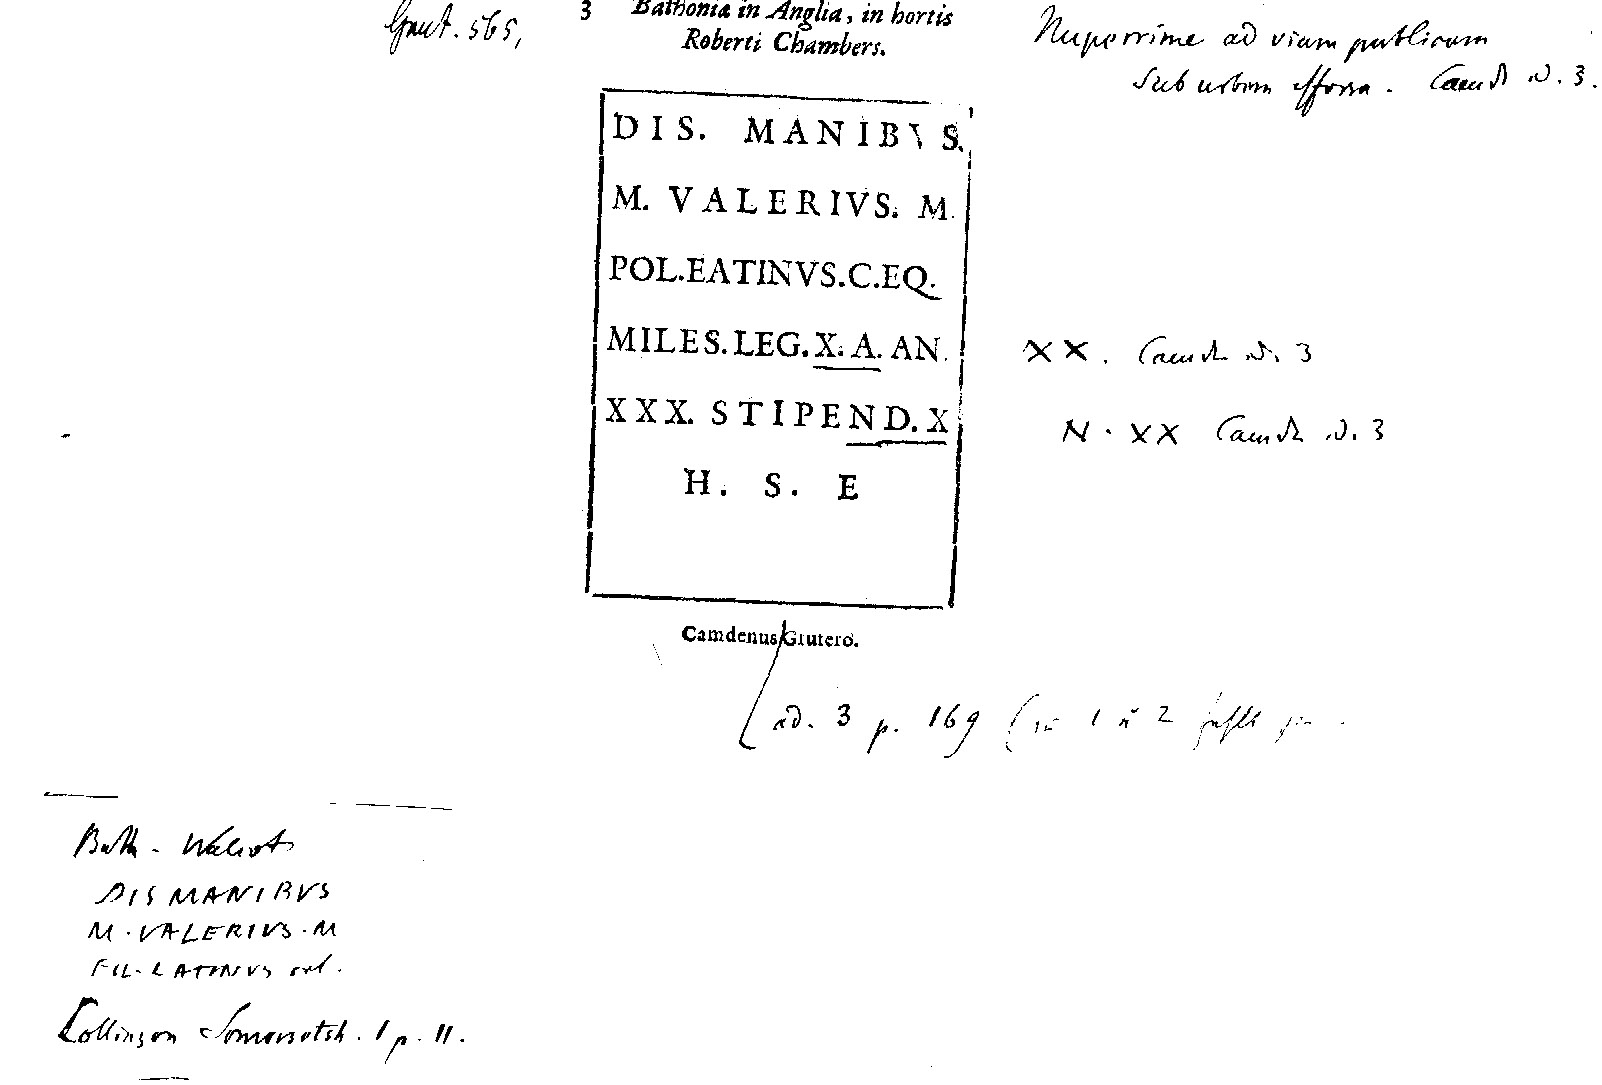 Grut. 565,
3 Bathoniæ in Anglia, in hortis
Roberti Chambers.
Nuperrime ad viam publicam
sub urbem effossa. Camd ed. 3.
DIS. MANIBVS.
M. VALERIVS. M.
POL.EATINVS.C.EQ.
MILES.LEG.X.A.AN.
XX. Camd ed. 3
XXX. STIPEND.X
N. XX Camd ed. 3
H. S. E
Camdenus Grutero.
ed. 3 p. 169 (in 1 u 2 fehlt
Bath. Walcot
DIS MANIBVS
M. VALERIVS. M
FIL. LATINVS cet.
Collinson Somersetsh. 1 p. 11.